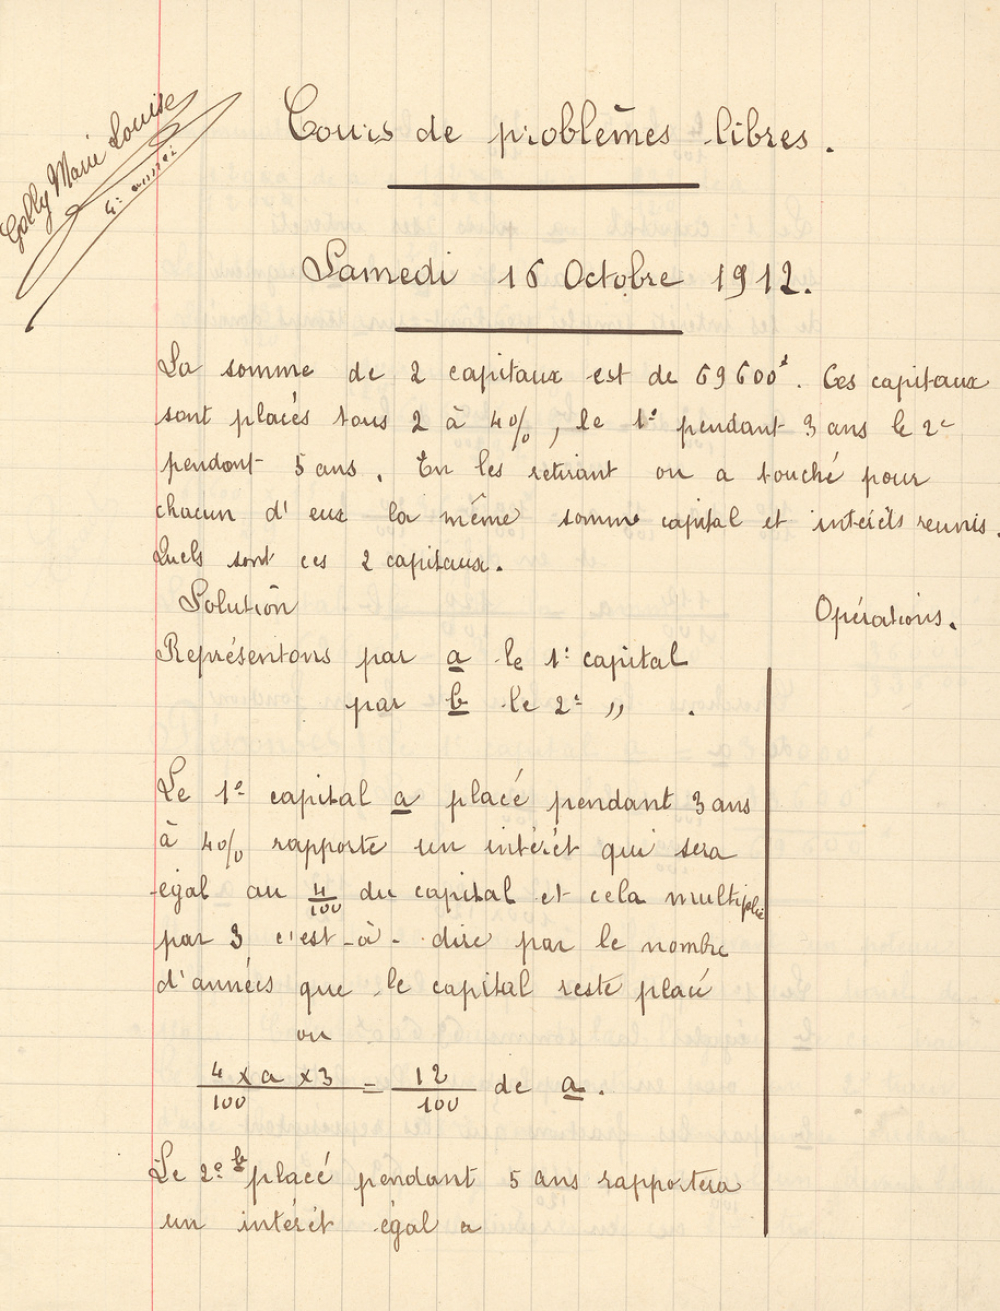 Golly Marie Louise
4e année
Cours de problêmes libres.
Samedi 16 Octobre 1912.
La somme de 2 capitaux est de 69600f. Ces capitaux
sont placés tous 2 à 4%, le 1e pendant 3 ans le 2e
pendant 5 ans. En les retirant on a touché pour
chacun d'eux la même somme capital et intérêts reunis.
Quels sont ces 2 capitaux.
Solution
Opérations.
Représentons par a le 1e capital
par b le 2e " .
Le 1e capital a placé pendant 3 ans
à 4% rapporte un intérêt qui sera
égal au 4/100 du capital et cela multiplié
par 3 c'est-à-dire par le nombre
d'années que le capital reste placé
ou
4 x a x 3 / 100 = 12 / 100 de a.
Le 2e b placé pendant 5 ans rapportera
un intérêt égal a